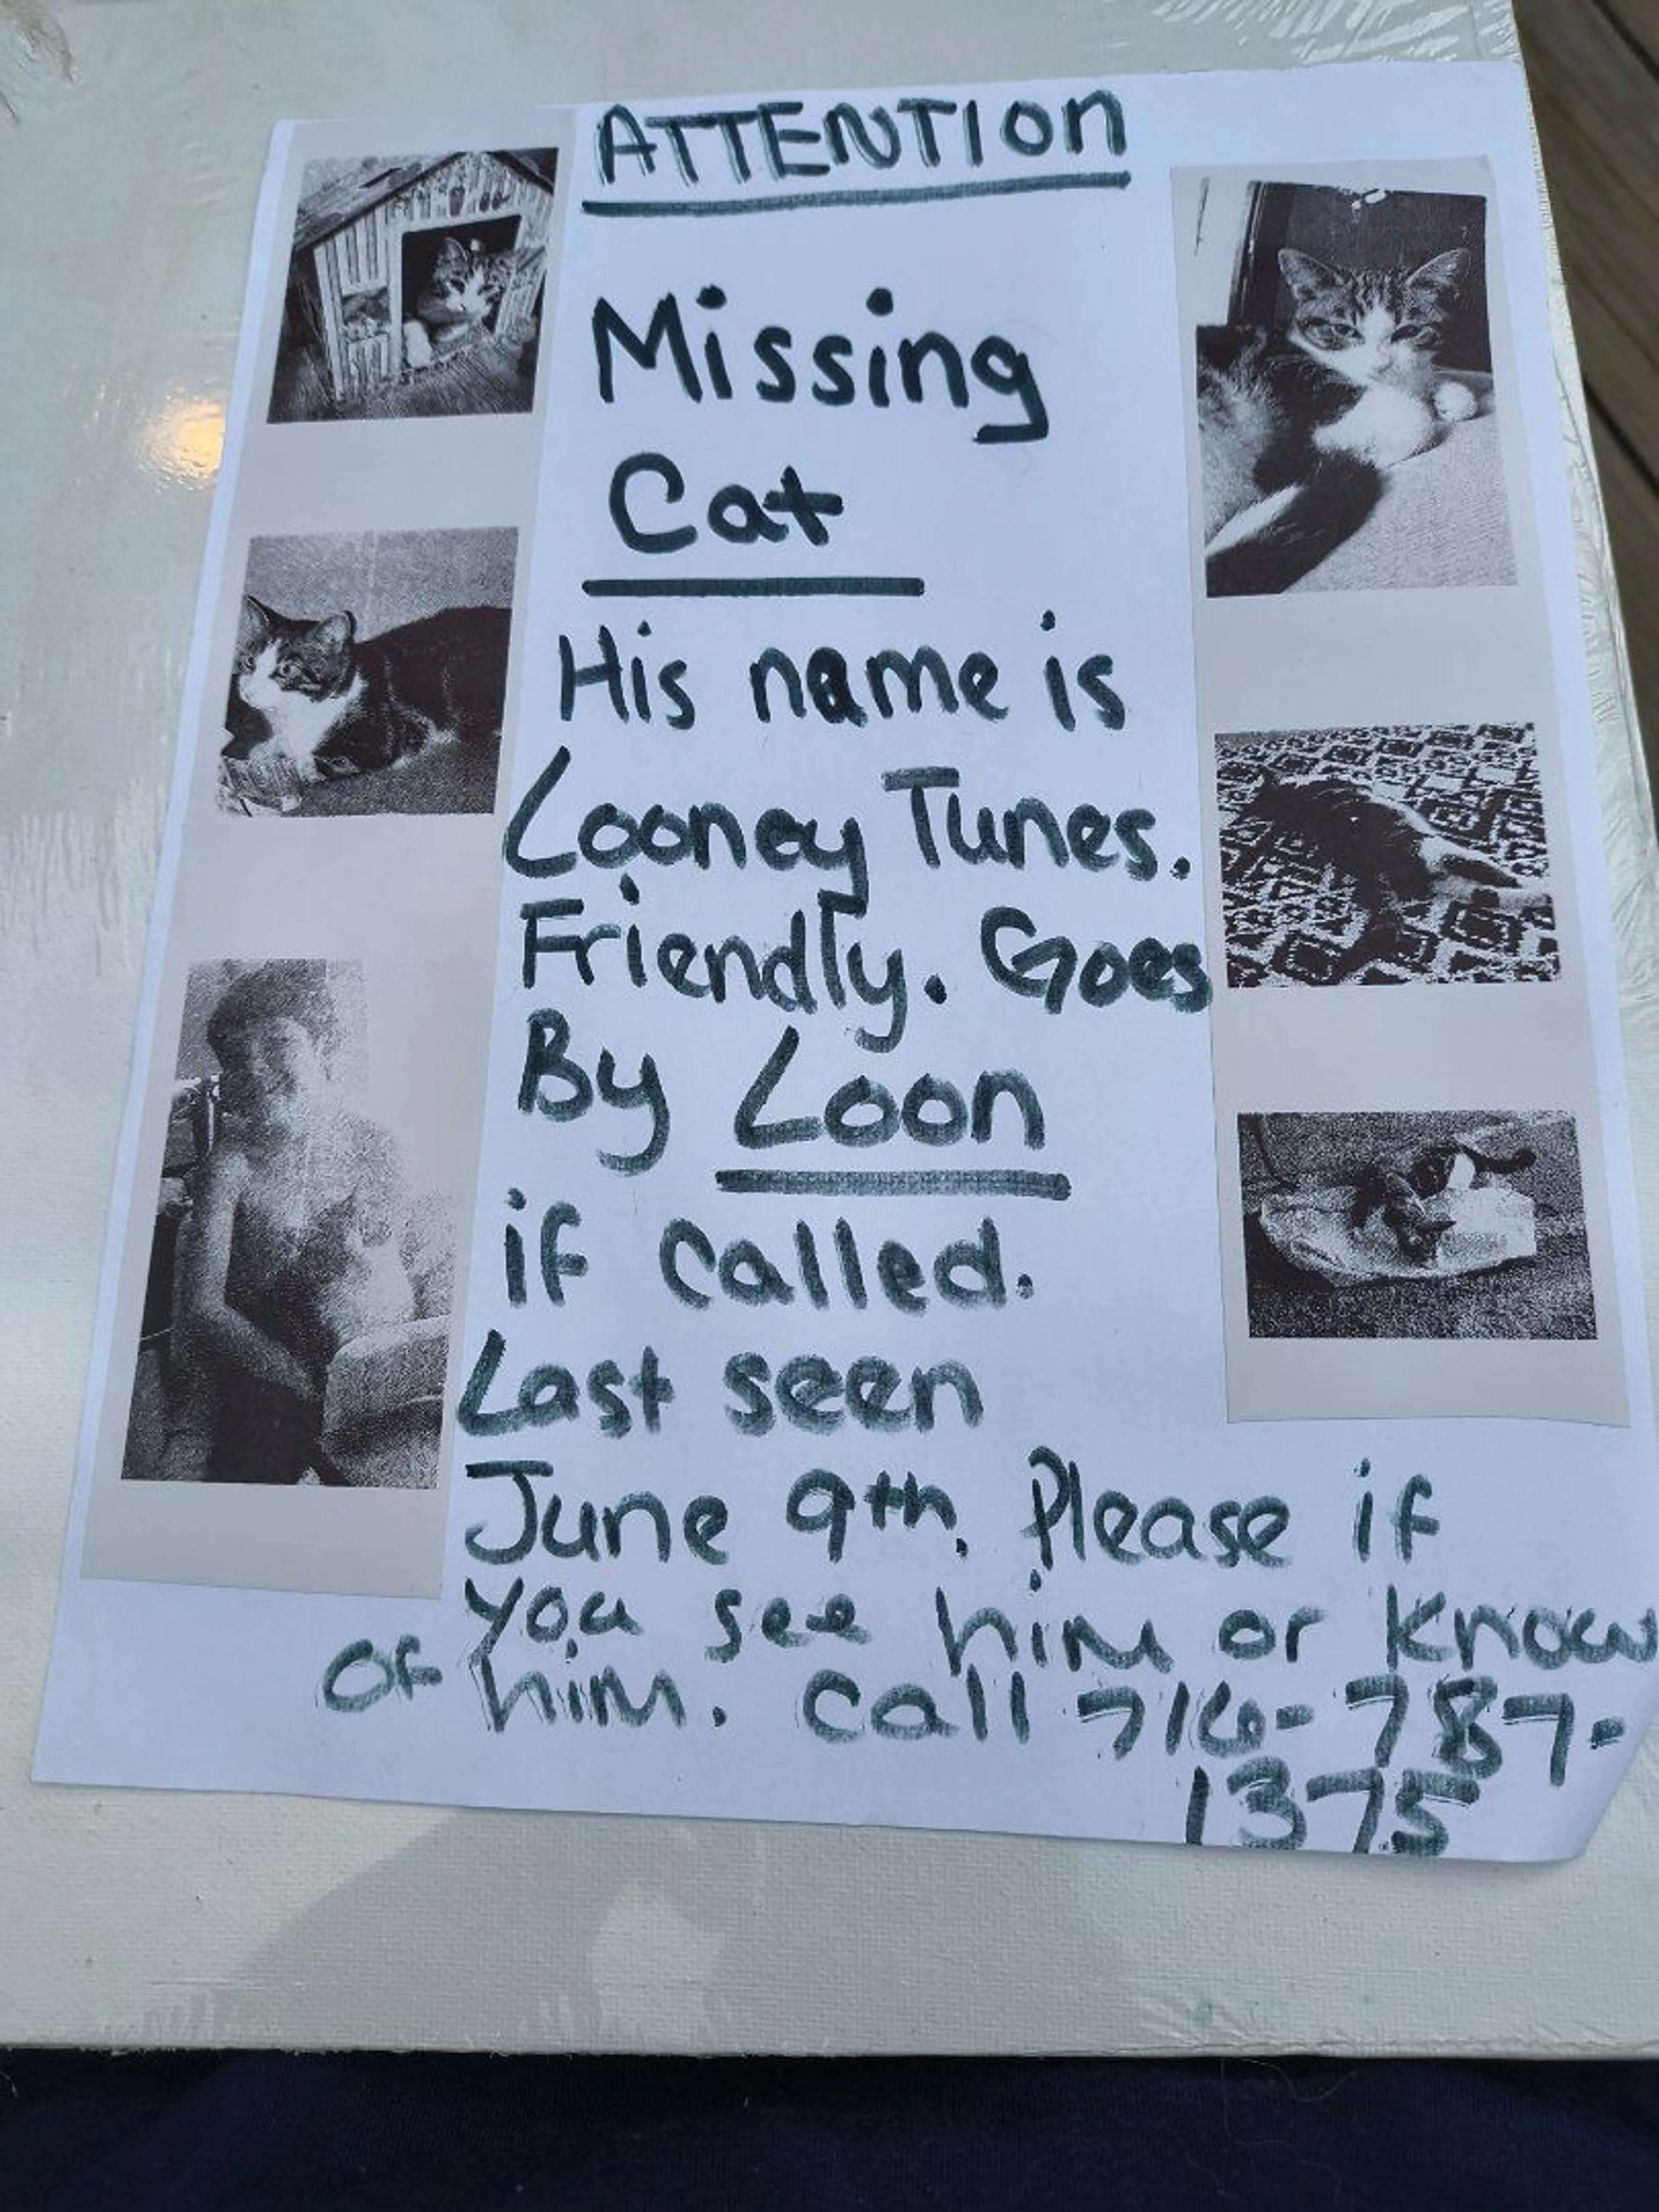 ATTENTION
Missing
Cat
His name is
Looney Tunes.
Friendly. Goes
By Loon
if called.
Last seen
June 9th. Please if
you see him or know
of him. Call 716-787-
1375